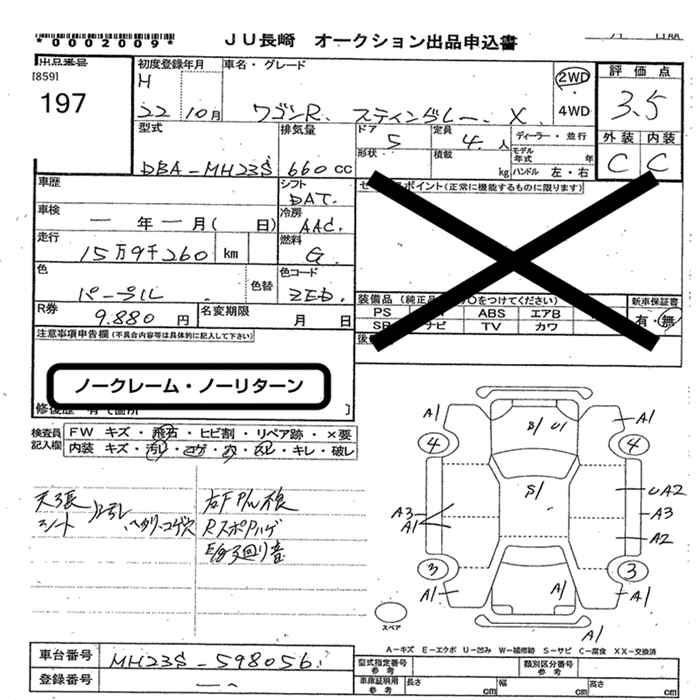 *0002009*
JU長崎 オークション出品申込書
出品番号
[859]
197
初度登録年月
H
22 10月
車名・グレード
ワゴンR. スティングレー. X.
2WD
・
4WD
評価点
3.5
外装 内装
C C
型式
DBA-MH23S
排気量
660cc
ドア
5
形状
定員
4.人
積載
kg
ディーラー・並行
モデル年式 年
ハンドル 左・右
車歴
シフト
DAT.
車検
— 年 — 月( 日)
冷房
AAC.
走行
15万9千260 km
燃料
G.
色
パープル
色替
色コード
ZED.
R券
9.880 円
名変期限
月 日
セ ポイント(正常に機能するものに限ります)
装備品(純正品 ○をつけてください)
PS ABS エアB
SR ナビ TV カワ
新車保証書
有・無
注意事項申告欄(不具合内容等は具体的に記入して下さい)
ノークレーム・ノーリターン
修復歴 有で箇所
検査員記入欄
FW キズ・飛石・ヒビ割・リペア跡・×要
内装 キズ・汚レ・コゲ・穴・スレ・キレ・破レ
天張
シート
汚れ
ヘタリ・コゲ穴
Rスポハゲ
E/g 廻り音
A1 A1
4 4
B1 U1
S1
UA2
A3 A3
A1
A2
3 3
A1 A1 A1
A1
スペア
A-キズ E-エクボ U-凹み W-補修跡 S-サビ C-腐食 XX-交換済
車台番号
MH23S-598056
登録番号
型式指定番号
参考
類別区分番号
参考
車庫証明用
参考
長さ cm
幅 cm
高さ cm